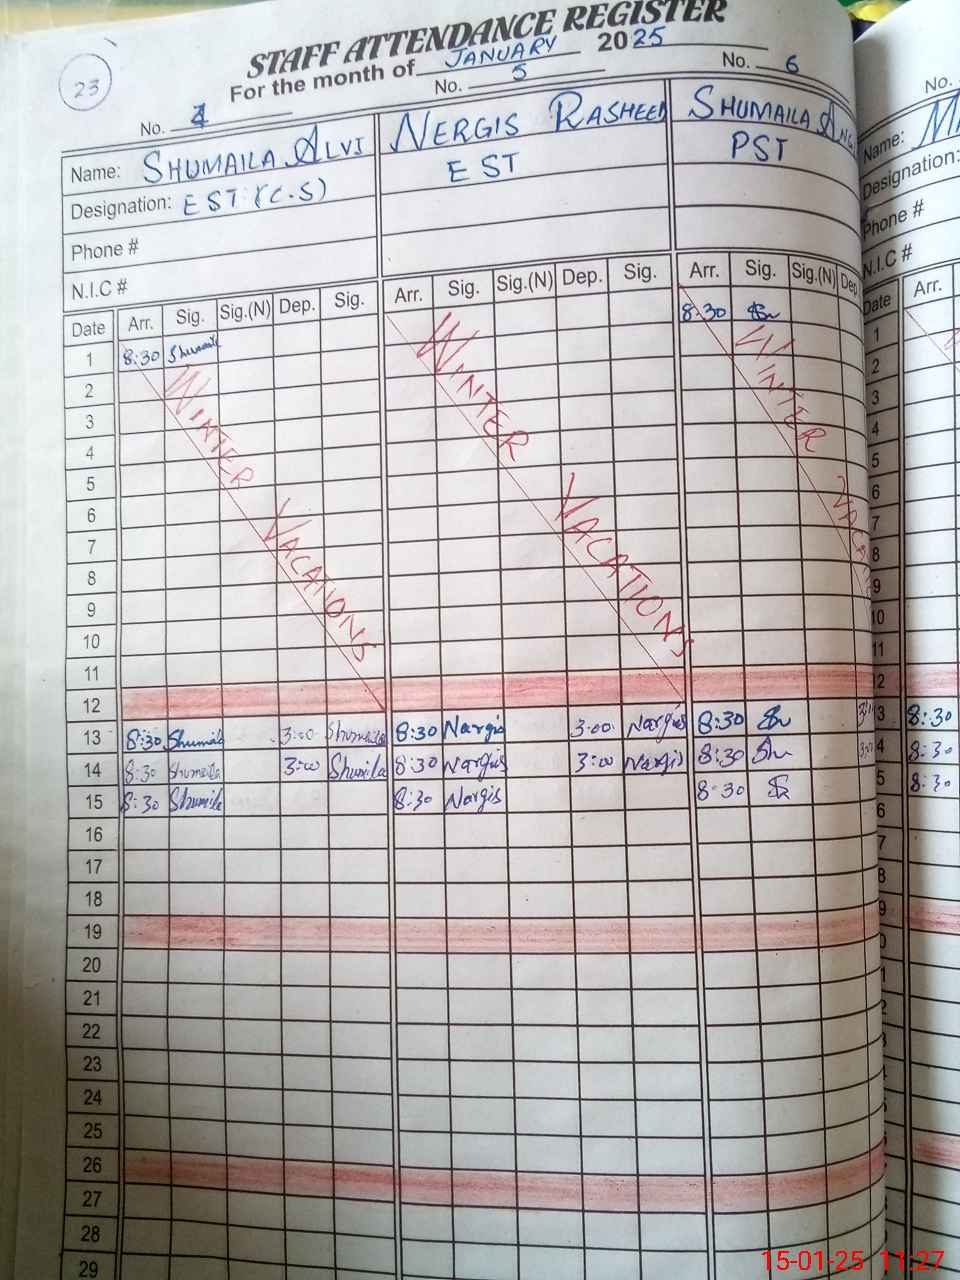 23
STAFF ATTENDANCE REGISTER
For the month of JANUARY 2025
No. 4 No. 5 No. 6 No.
Name: SHUMAILA ALVI NERGIS RASHEED SHUMAILA Name:
Designation: EST (C.S) EST PST Designation:
Phone # Phone #
N.I.C # N.I.C #
Date Arr. Sig. Sig.(N) Dep. Sig. Arr. Sig. Sig.(N) Dep. Sig. Arr. Sig. Sig.(N) Dep Date Arr.
1 8:30 Shumaila 8:30 1
2 2
3 3
4 4
5 5
6 6
7 7
8 8
9 9
10 10
11 11
12 2
13 8:30 Shumaila 3:00 Shumaila 8:30 Nargis 3:00 Nargis 8:30 3 8:30
14 8:30 Shumaila 3:00 Shumaila 8:30 Nargis 3:00 Nargis 8:30 4 8:30
15 8:30 Shumaila 8:30 Nargis 8:30 5 8:30
16 6
17 7
18 8
19 9
20 0
21
22
23
24
25
26
27
28
29
WINTER VACATIONS
WINTER VACATIONS
WINTER
15-01-25 11:27